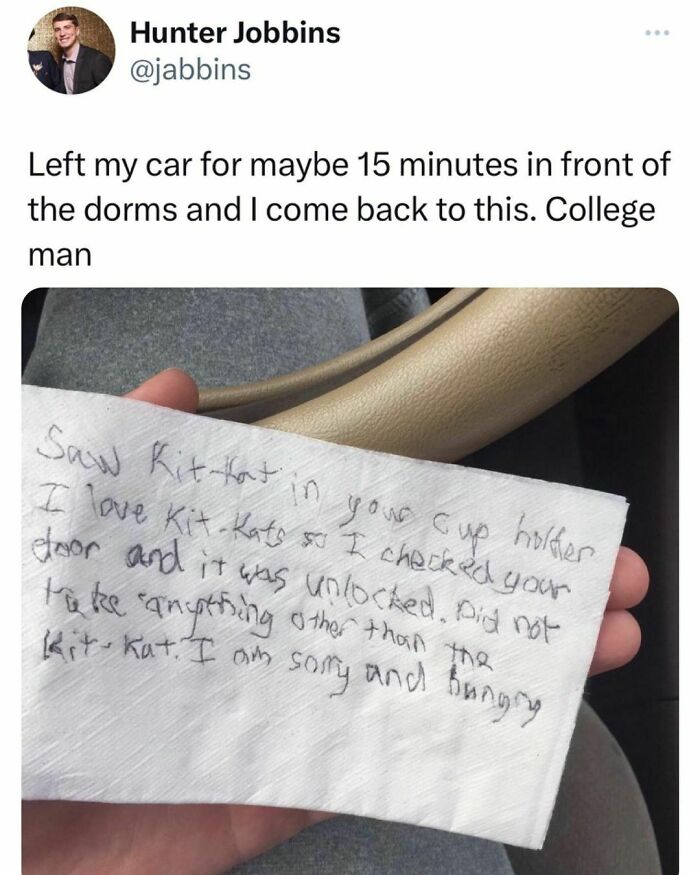 Hunter Jobbins
@jabbins
Left my car for maybe 15 minutes in front of
the dorms and I come back to this. College
man
Saw Kit-Kat in your cup holder
I love Kit-Kats so I checked your
door and it was unlocked. Did not
take anything other than the
Kit-Kat. I am sorry and hungry